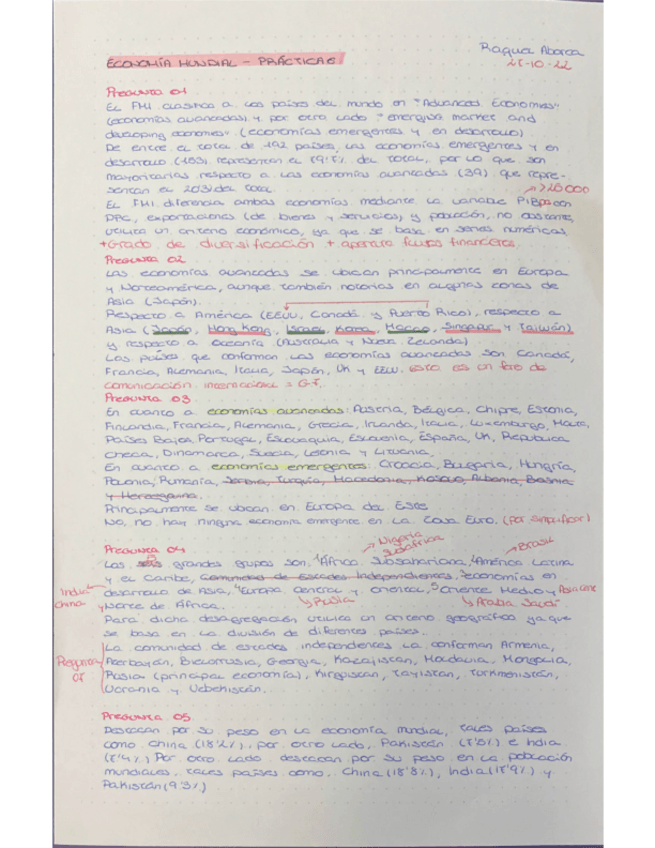 ECONOMÍA MUNDIAL - PRÁCTICA 6
Raquel Aborca
25-10-22
Pregunta 01
El FMI clasifica a los países del mundo en "Advanced Economies"
(economías avanzadas) y por otro lado "emerging market and
developing economies" (economías emergentes y en desarrollo)
De entre el total de 192 países, las economías emergentes y en
desarrollo (153), representan el 79'7% del total, por lo que son
mayoritarias respecto a las economías avanzadas (39) que repre-
sentan el 20'3% del total.
→ >20000
El FMI diferencia ambas economías mediante la variable PIBpc con
PPC, exportaciones (de bienes y servicios) y población, no obstante,
utiliza un criterio económico, ya que se basa en series numéricas.
+Grado de diversificación + apertura flujos financieros.
Pregunta 02
Las economías avanzadas se ubican principalmente en Europa
y Norteamérica, aunque también notorias en algunas zonas de
Asia (Japón).
Respecto a América (EEUU, Canadá y Puerto Rico), respecto a
Asia (Japón, Hong Kong, Israel, Korea, Macao, Singapur y Taiwán)
y respecto a Oceanía (Australia y Nueva Zelanda)
Los países que conforman las economías avanzadas son Canadá,
Francia, Alemania, Italia, Japón, UK y EEUU. esto es un foro de
comunicación internacional = G7.
Pregunta 03
En cuanto a economías avanzadas: Austria, Bélgica, Chipre, Estonia,
Finlandia, Francia, Alemania, Grecia, Irlanda, Italia, Luxemburgo, Malta,
Países Bajos, Portugal, Eslovaquia, Eslovenia, España, UK, República
Checa, Dinamarca, Suecia, Letonia y Lituania.
En cuanto a economías emergentes: Croacia, Bulgaria, Hungría,
Polonia, Rumanía, Serbia, Turquía, Macedonia, Kosovo, Albania, Bosnia
y Herzegovina.
Principalmente se ubican en Europa del Este
No, no hay ninguna economía emergente en la Zona Euro. (por simplificar)
Pregunta 04
→ Nigeria
Sudáfrica
→ Brasil
Los seis grandes grupos son, ¹África Subsahariana, ²América Latina
y el Caribe, Comunidad de Estados Independientes, ³economías en
India
China
desarrollo de Asia, ⁴Europa central y oriental, ⁵Oriente Medio y Asia Central
y Norte de África.
→ Rusia
→ Arabia Saudí
Para dicha desagregación utiliza un criterio geográfico ya que
se basa en la división de diferentes países.
La comunidad de estados independientes la conforman Armenia,
Pregunta
05
Azerbayán, Bielorrusia, Georgia, Kazajistán, Moldavia, Mongolia,
Rusia (principal economía), Kirguistán, Tayistán, Turkmenistán,
Ucrania y Uzbekistán.
Pregunta 05
Destacan por su peso en la economía mundial, tales países
como China (18'2%), por otro lado, Pakistán (7'5%) e India
Por otro lado destacan por su peso en la población
mundiales, tales países como, China (18'8%), India (17'9%) y
Pakistán (9'3%)